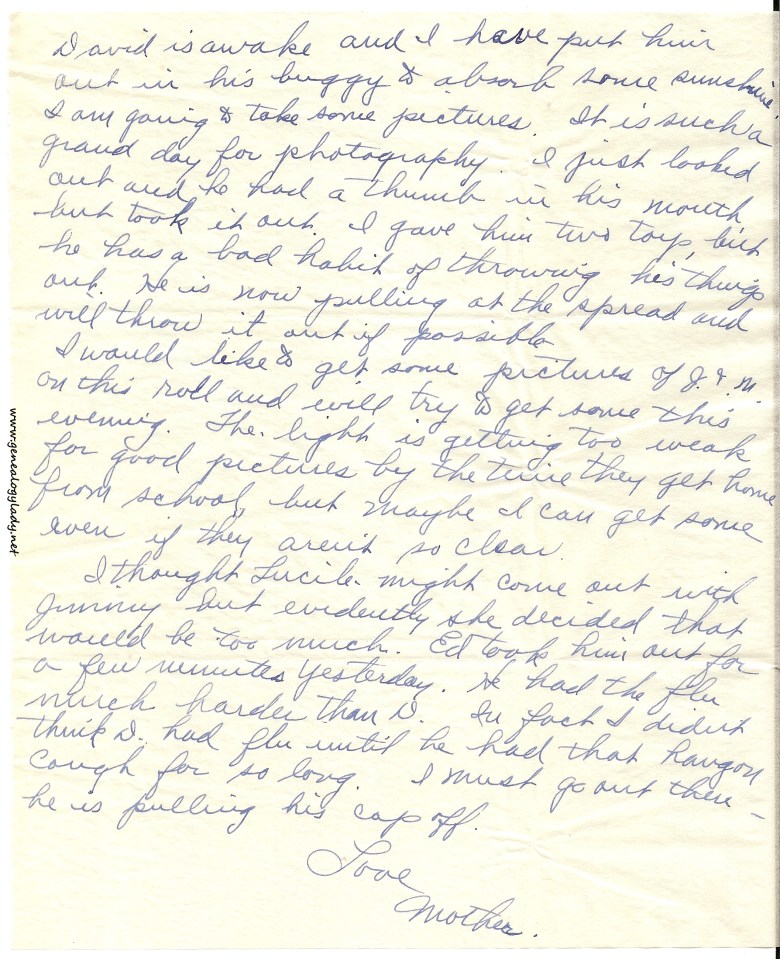 David is awake and I have put him
out in his buggy to absorb some sunshine.
I am going to take some pictures. It is such a
grand day for photography. I just looked
out and he had a thumb in his mouth
but took it out. I gave him two toys, but
he has a bad habit of throwing his things
out. He is now pulling at the spread and
will throw it out if possible
I would like to get some pictures of J. & M.
on this roll and will try to get some this
evening. The light is getting too weak
for good pictures by the time they get home
from school, but maybe I can get some
even if they aren't so clear.
I thought Lucile might come out with
Jimmy but evidently she decided that
would be too much. Ed took him out for
a few minutes yesterday. He had the flu
much harder than D. In fact I didn't
think D. had flu until he had that hangon
cough for so long. I must go out there -
he is pulling his cap off.
Love
Mother.
www.genealogylady.net